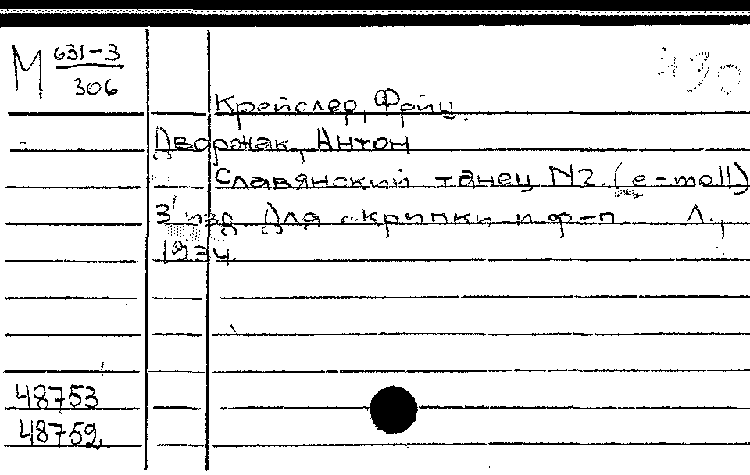 М 631-3
306
430
Крейслер, Фриц.
Дворжак, Антон
Славянский танец N2. (e-moll)
3 изд Для скрипки и ф-п Л.,
1934
48753
48759